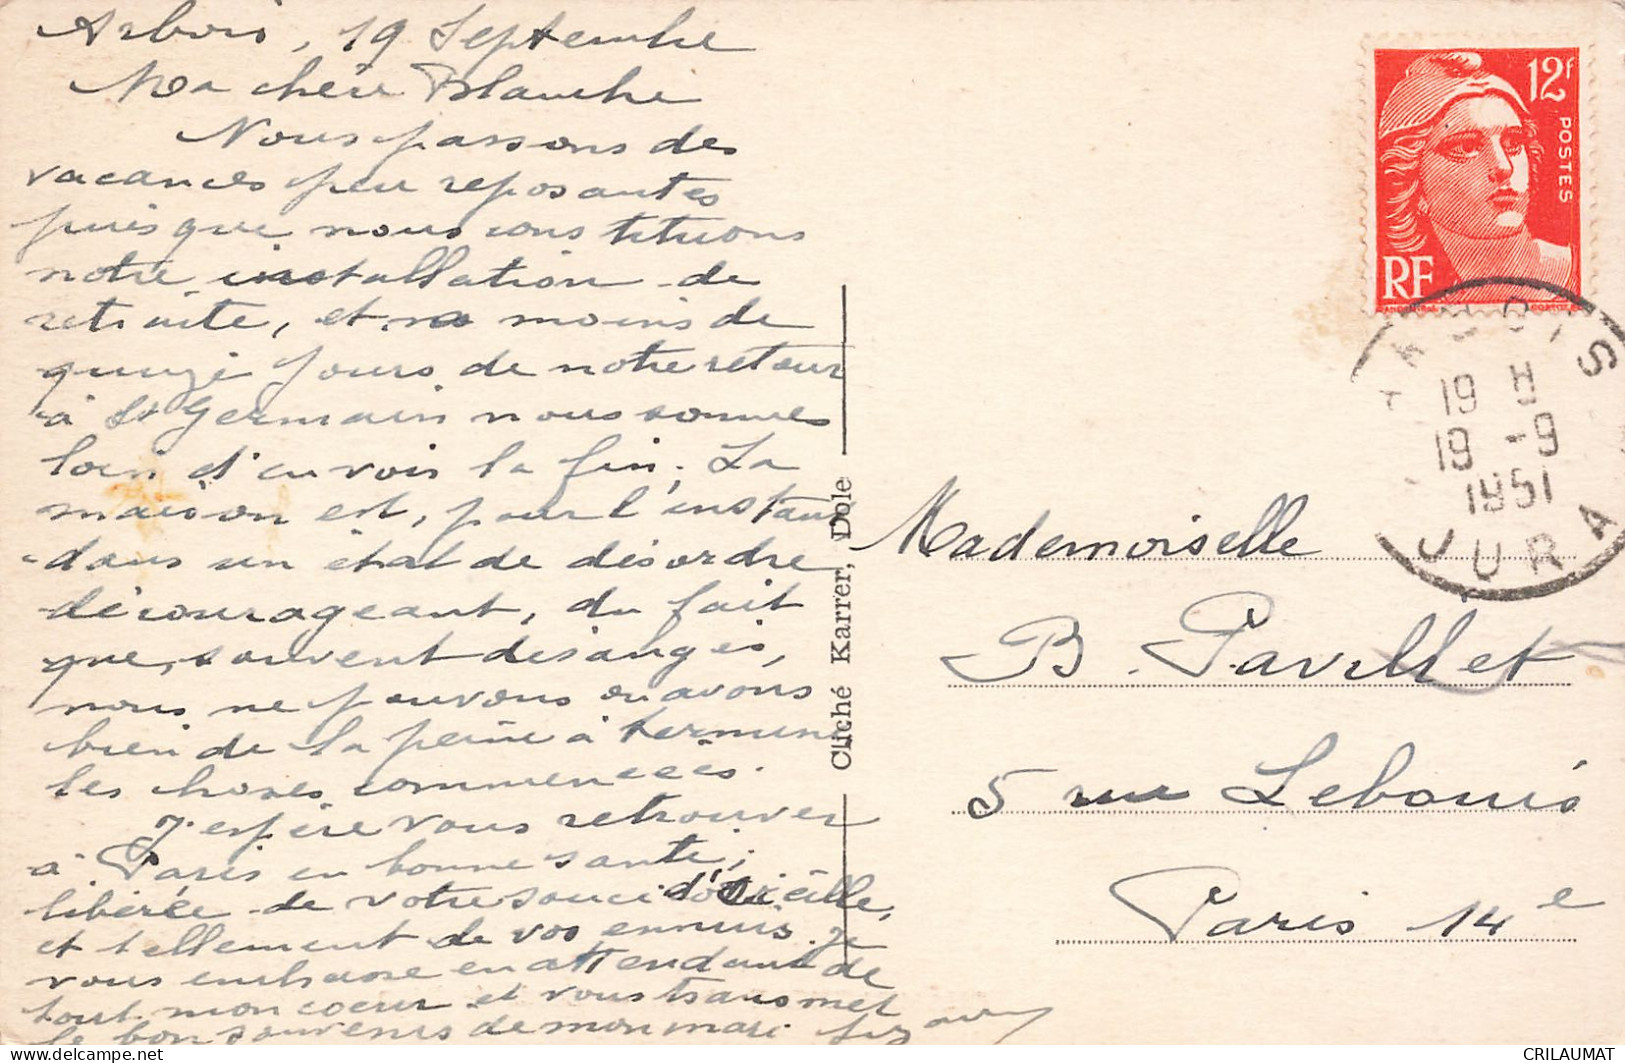 Arbois, 19 Septembre
Ma chère Blanche
Nous passons des
vacances peu reposantes
puisque nous constituons
notre installation de
retraite, et à moins de
quinze jours de notre retour
à St Germain nous sommes
loin d'en voir la fin. La
maison est, pour l'instant
dans un état de désordre
décourageant, du fait
que, souvent dérangés,
nous ne pouvons ou avons
bien de la peine à terminer
les choses commencées.
J'espère vous retrouver
à Paris en bonne santé,
libérée de votre souci d'oreille,
et tellement de vos ennuis. Je
vous embrasse en attendant de
tout mon coeur et vous transmet
le bon souvenir de mon mari
Cliché Karrer, Dole
12f
POSTES
RF
ARBOIS
19 H
19 -9
1951
JURA
Mademoiselle
B. Pavillet
5 rue Lebouis
Paris 14e
CRILAUMAT